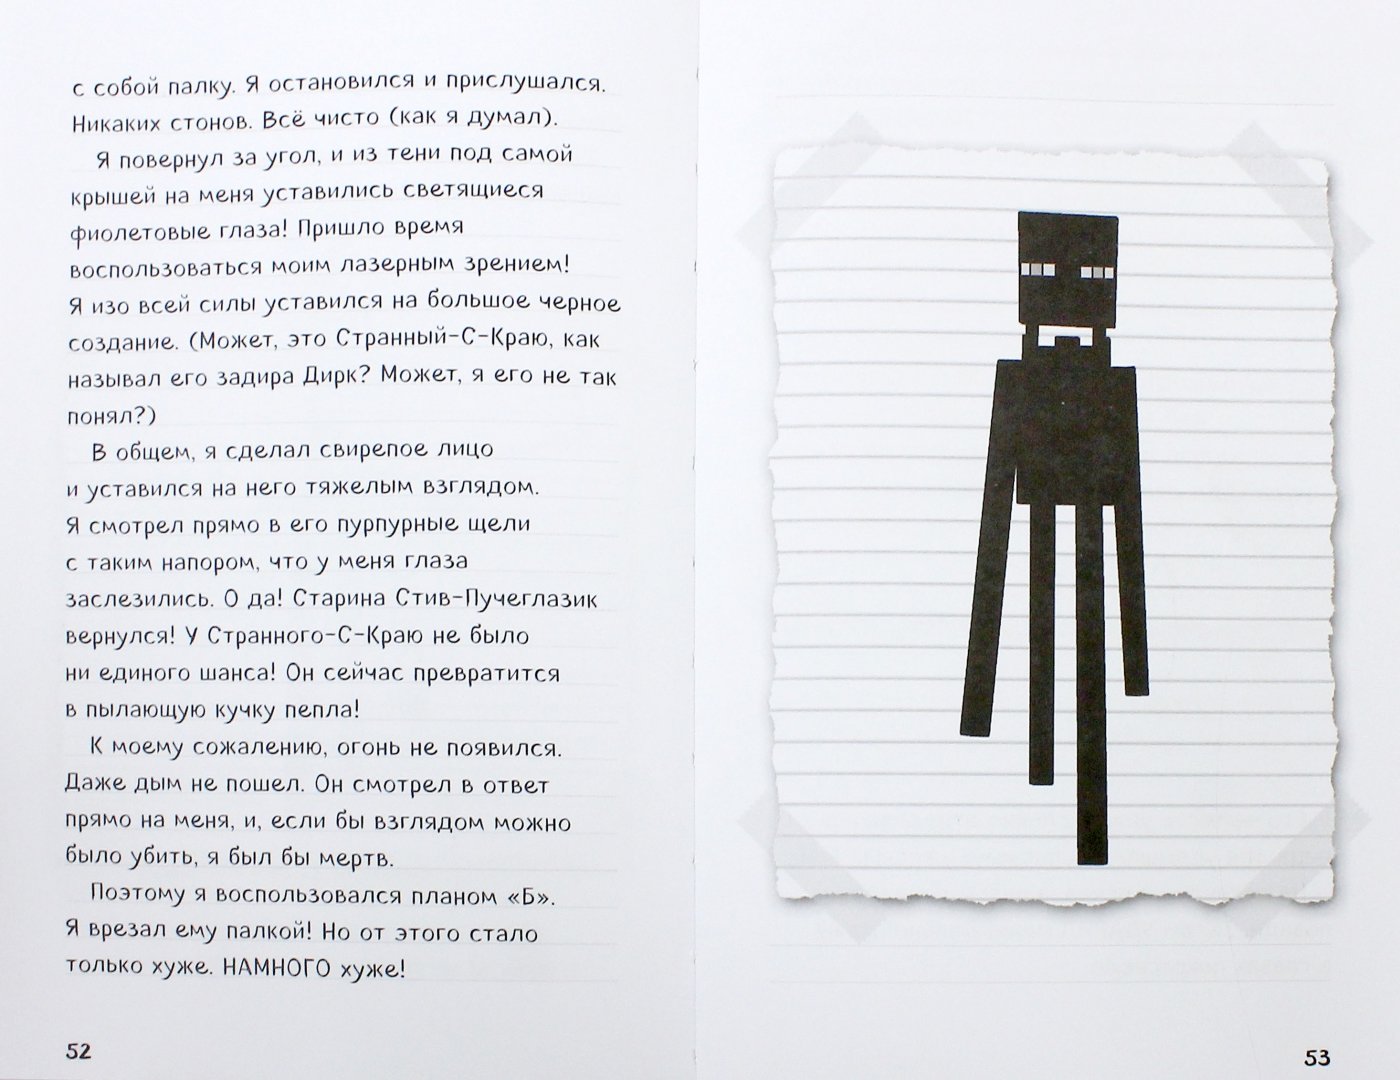 с собой палку. Я остановился и прислушался.
Никаких стонов. Всё чисто (как я думал).
Я повернул за угол, и из тени под самой
крышей на меня уставились светящиеся
фиолетовые глаза! Пришло время
воспользоваться моим лазерным зрением!
Я изо всей силы уставился на большое черное
создание. (Может, это Странный-С-Краю, как
называл его задира Дирк? Может, я его не так
понял?)
В общем, я сделал свирепое лицо
и уставился на него тяжелым взглядом.
Я смотрел прямо в его пурпурные щели
с таким напором, что у меня глаза
заслезились. О да! Старина Стив-Пучеглазик
вернулся! У Странного-С-Краю не было
ни единого шанса! Он сейчас превратится
в пылающую кучку пепла!
К моему сожалению, огонь не появился.
Даже дым не пошел. Он смотрел в ответ
прямо на меня, и, если бы взглядом можно
было убить, я был бы мертв.
Поэтому я воспользовался планом «Б».
Я врезал ему палкой! Но от этого стало
только хуже. НАМНОГО хуже!
52
53